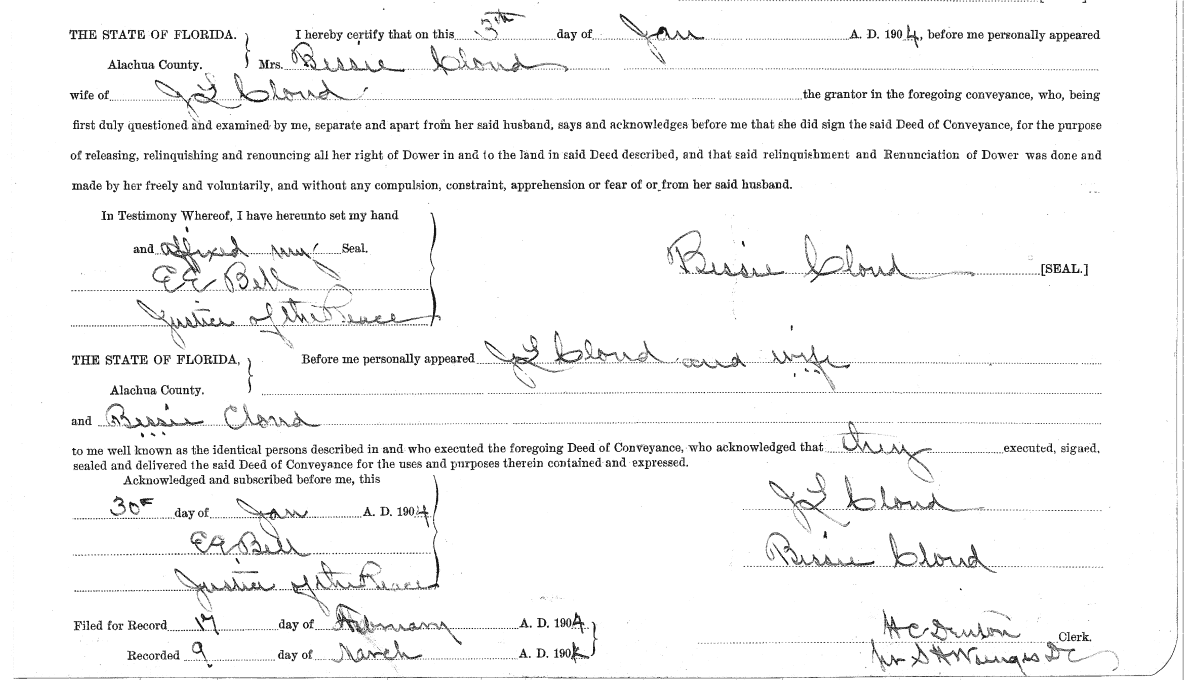 THE STATE OF FLORIDA. } I hereby certify that on this 3th day of Jan A. D. 1904, before me personally appeared
Alachua County. Mrs. Bessie Cloud
wife of J L Cloud the grantor in the foregoing conveyance, who, being
first duly questioned and examined by me, separate and apart from her said husband, says and acknowledges before me that she did sign the said Deed of Conveyance, for the purpose
of releasing, relinquishing and renouncing all her right of Dower in and to the land in said Deed described, and that said relinquishment and Renunciation of Dower was done and
made by her freely and voluntarily, and without any compulsion, constraint, apprehension or fear of or from her said husband.
In Testimony Whereof, I have hereunto set my hand
and affixed my Seal.
E E Bell
Justice of the Peace
Bessie Cloud [SEAL.]
THE STATE OF FLORIDA, } Before me personally appeared J L Cloud and wife
Alachua County.
and Bessie Cloud
to me well known as the identical persons described in and who executed the foregoing Deed of Conveyance, who acknowledged that they executed, signed,
sealed and delivered the said Deed of Conveyance for the uses and purposes therein contained and expressed.
Acknowledged and subscribed before me, this
30th day of Jan A. D. 1904
E E Bell
Justice of the Peace
J L Cloud
Bessie Cloud
Filed for Record 17 day of February A. D. 1904
Recorded 9 day of March A. D. 1904
H C Denton Clerk.
per S H Wienges DC